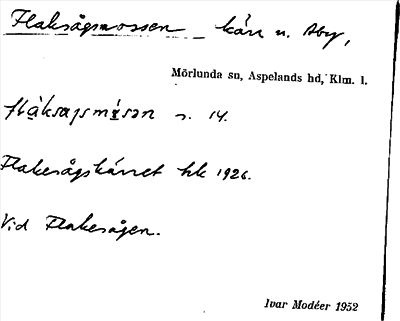 Flaksågsmossen kärr n. Åby,
Mörlunda sn, Aspelands hd, Klm. l.
n. 14.
Flakesågskärret hk 1926.
Vid Flakesågen.
Ivar Modéer 1952